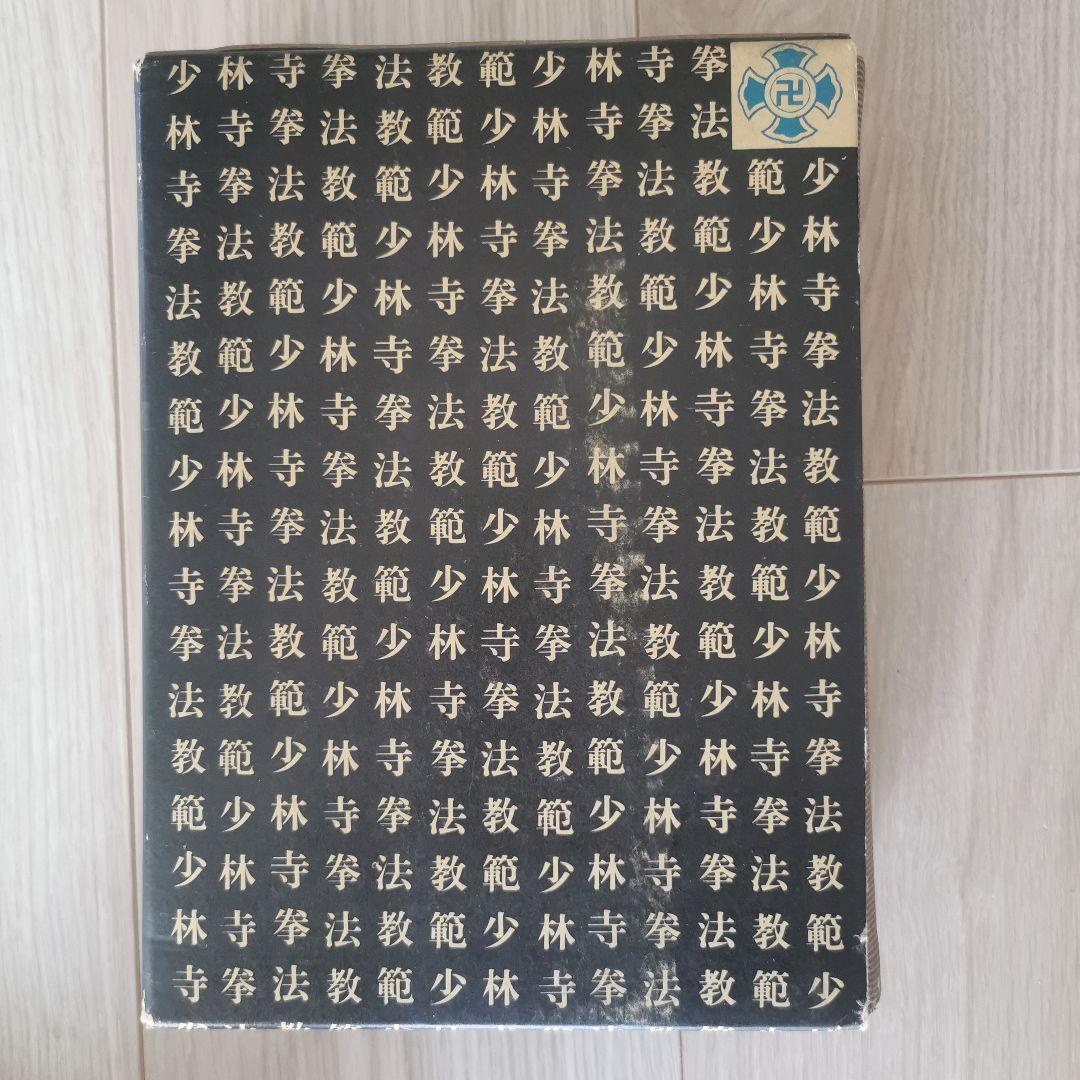 少林寺拳法教範少林寺拳
卍
林寺拳法教範少林寺拳法
寺拳法教範少林寺拳法教範少
拳法教範少林寺拳法教範少林
法教範少林寺拳法教範少林寺
教範少林寺拳法教範少林寺拳
範少林寺拳法教範少林寺拳法
少林寺拳法教範少林寺拳法教
林寺拳法教範少林寺拳法教範
寺拳法教範少林寺拳法教範少
拳法教範少林寺拳法教範少林
法教範少林寺拳法教範少林寺
教範少林寺拳法教範少林寺拳
範少林寺拳法教範少林寺拳法
少林寺拳法教範少林寺拳法教
林寺拳法教範少林寺拳法教範
寺拳法教範少林寺拳法教範少